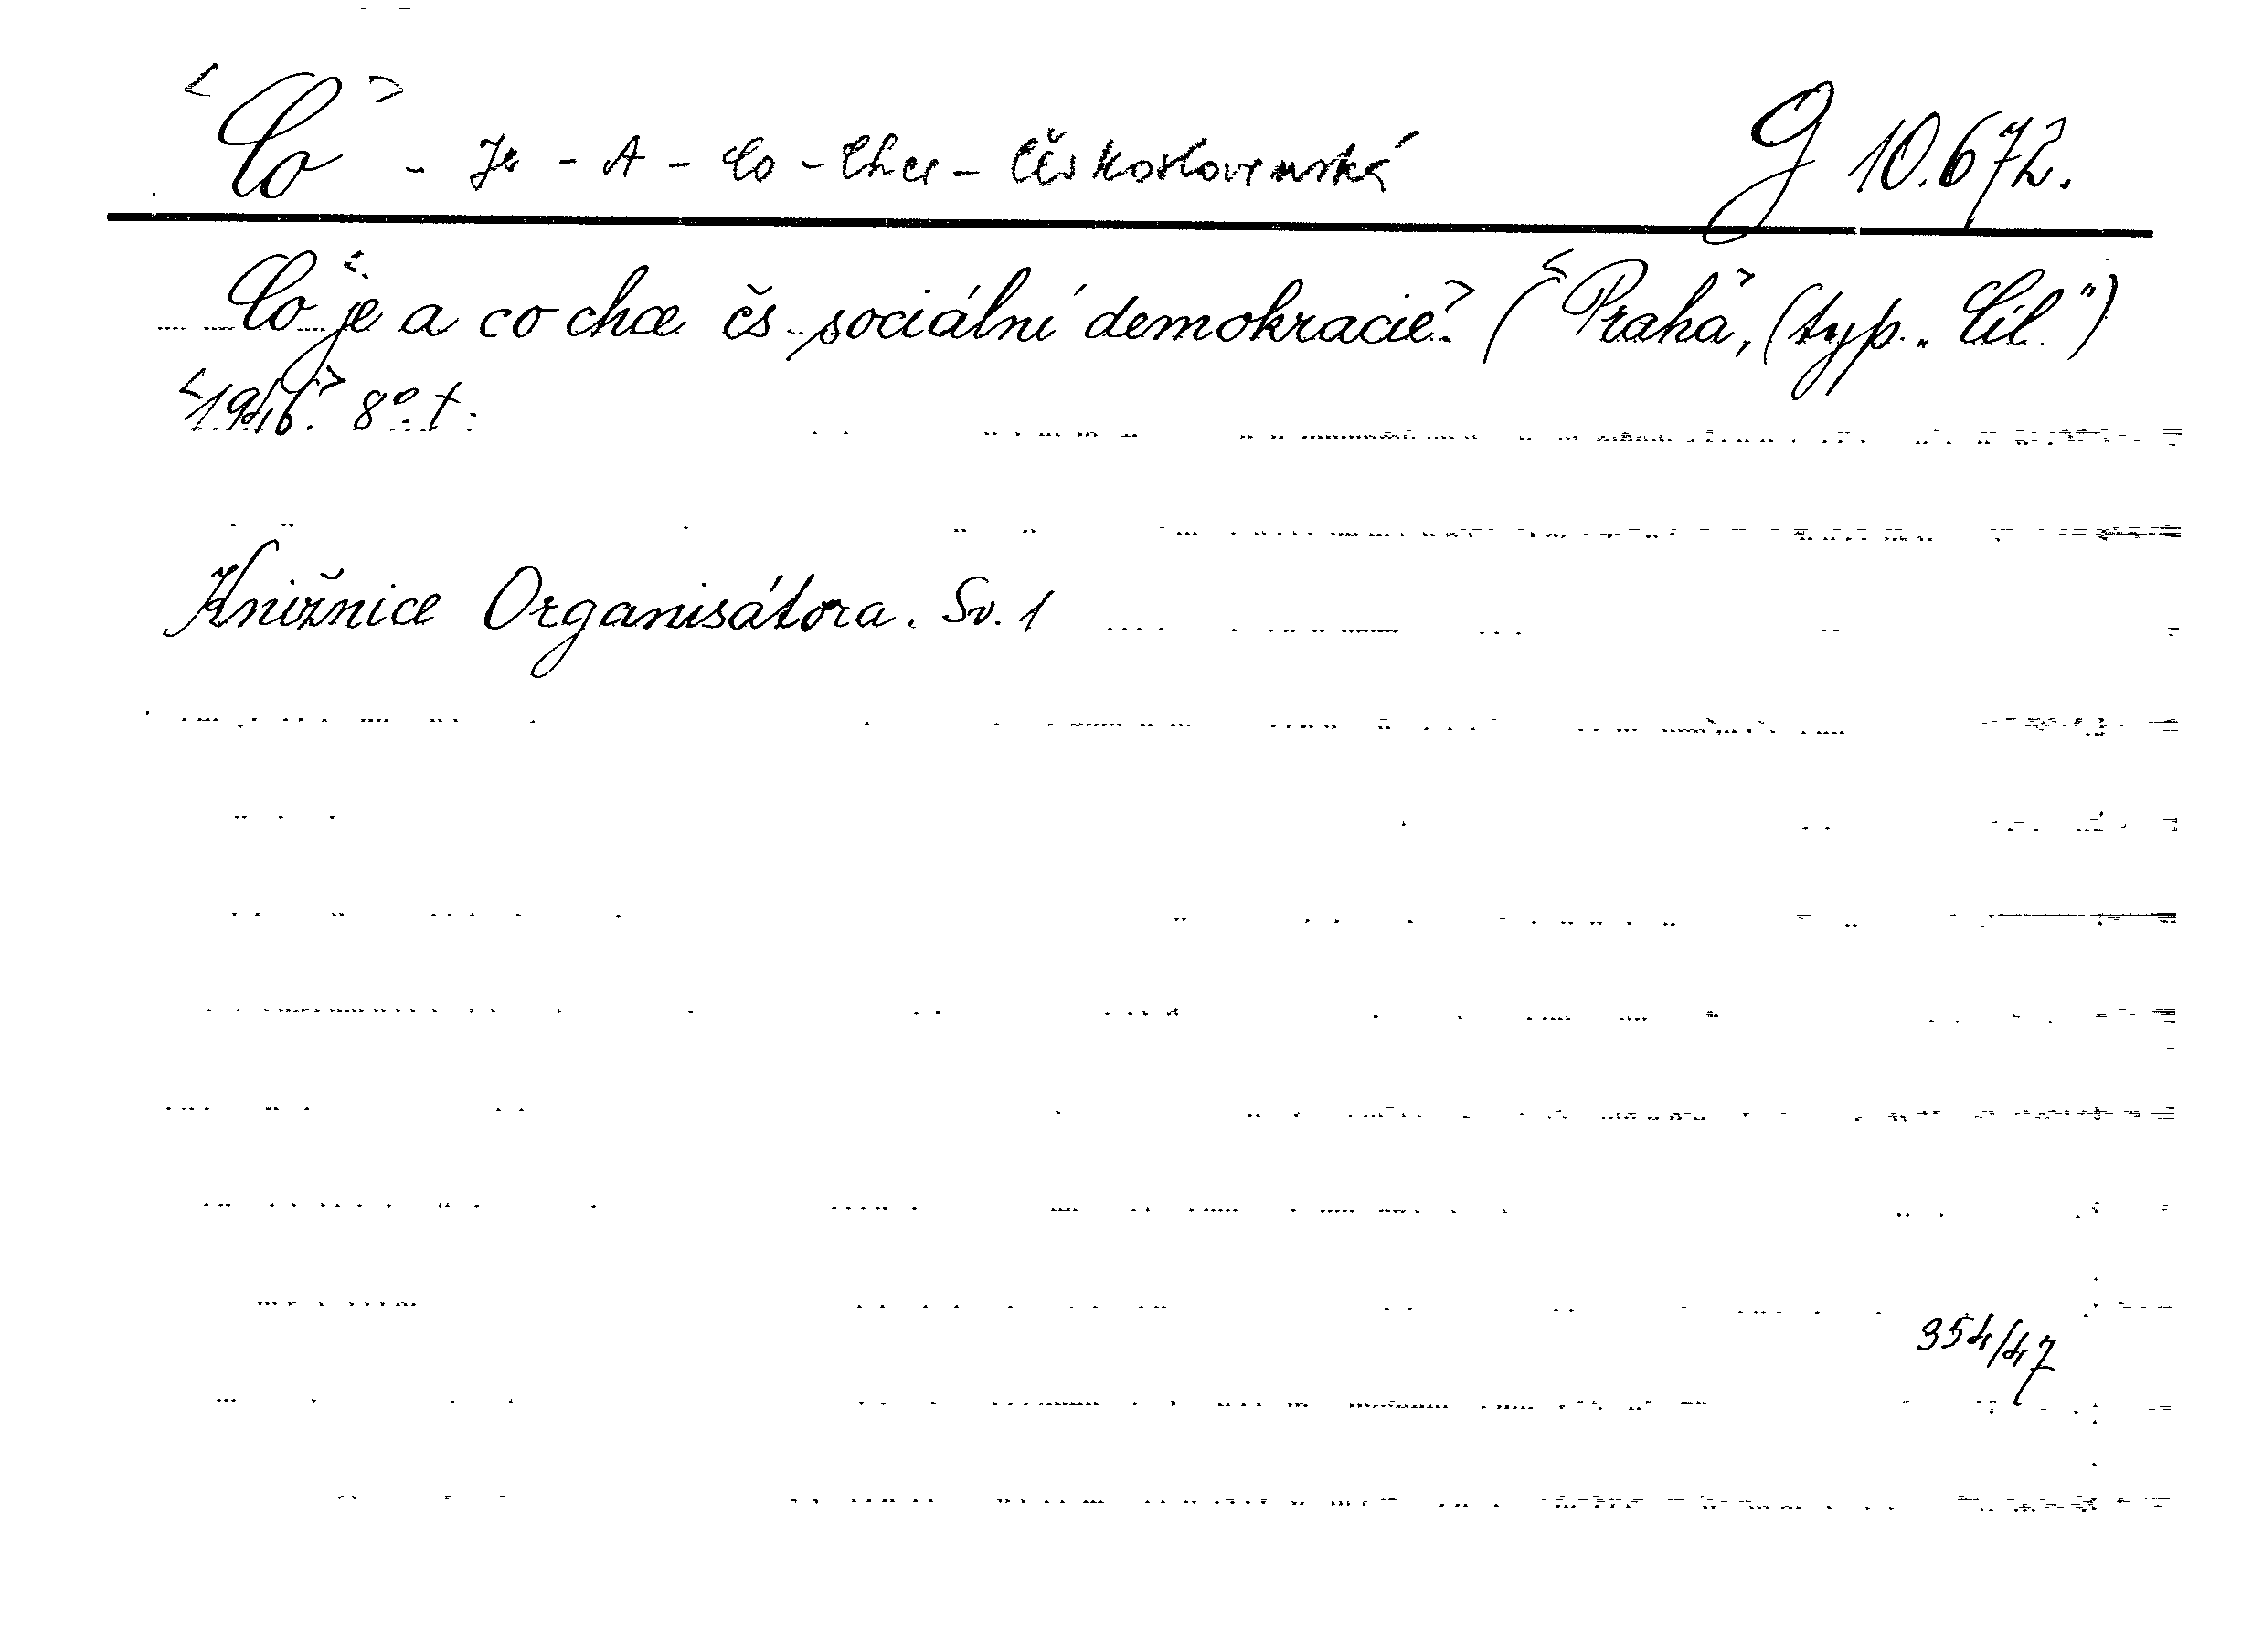 <Co> - Je - A - Co - Chce - Československá G 10.672.
Co <je a co chce čs. sociální demokracie?> (<Praha>, (typ. „Cíl")
<1946.> 8°. t.
Knižnice Organisátora. Sv. 1
354/47